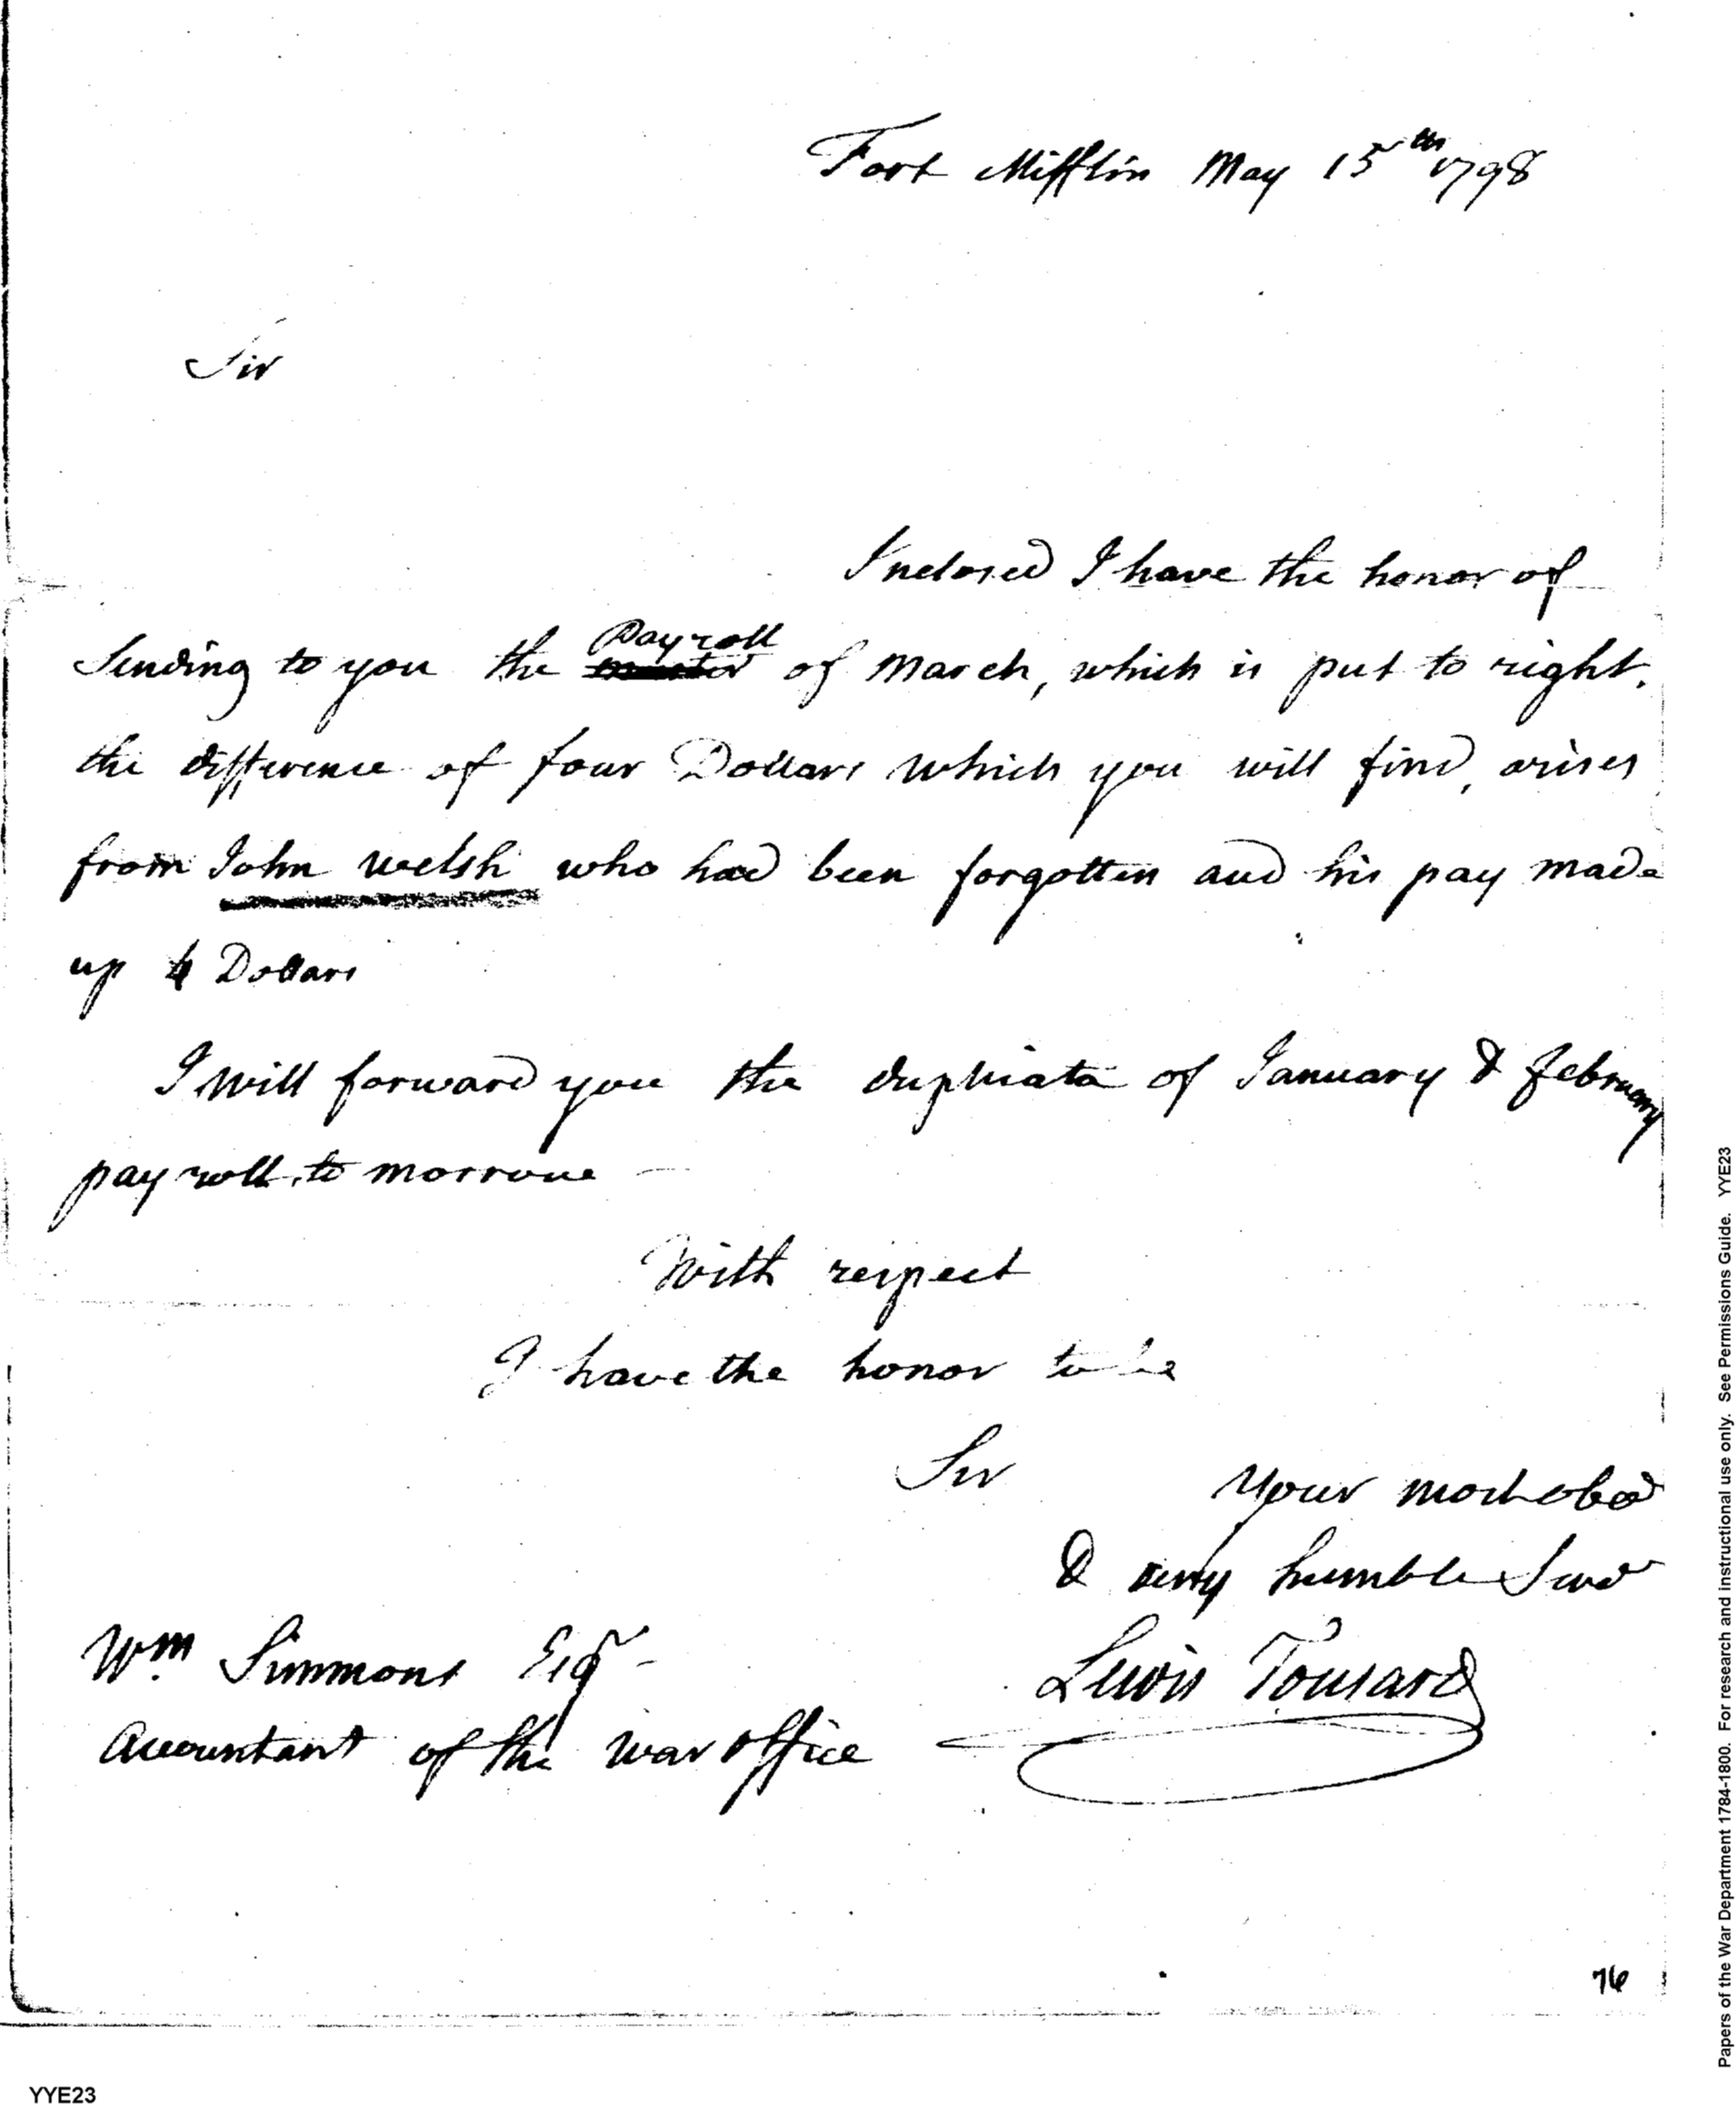 Fort Mifflin May 15th 1798
Sir
Inclosed I have the honor of
Payroll
Sending to you the muster of March, which is put to right.
the difference of four Dollars which you will find, arises
from John Welsh who had been forgotten and his pay made
up 4 Dollars
I will forward you the duplicata of January & february
pay roll to morrow
With respect
I have the honor to be
Sir Your most obed
& very humble Serv
Wm Simmons Esqr Lewis Tousard
Accountant of the War office
76
YYE23
Papers of the War Department 1784-1800. For research and instructional use only. See Permissions Guide. YYE23